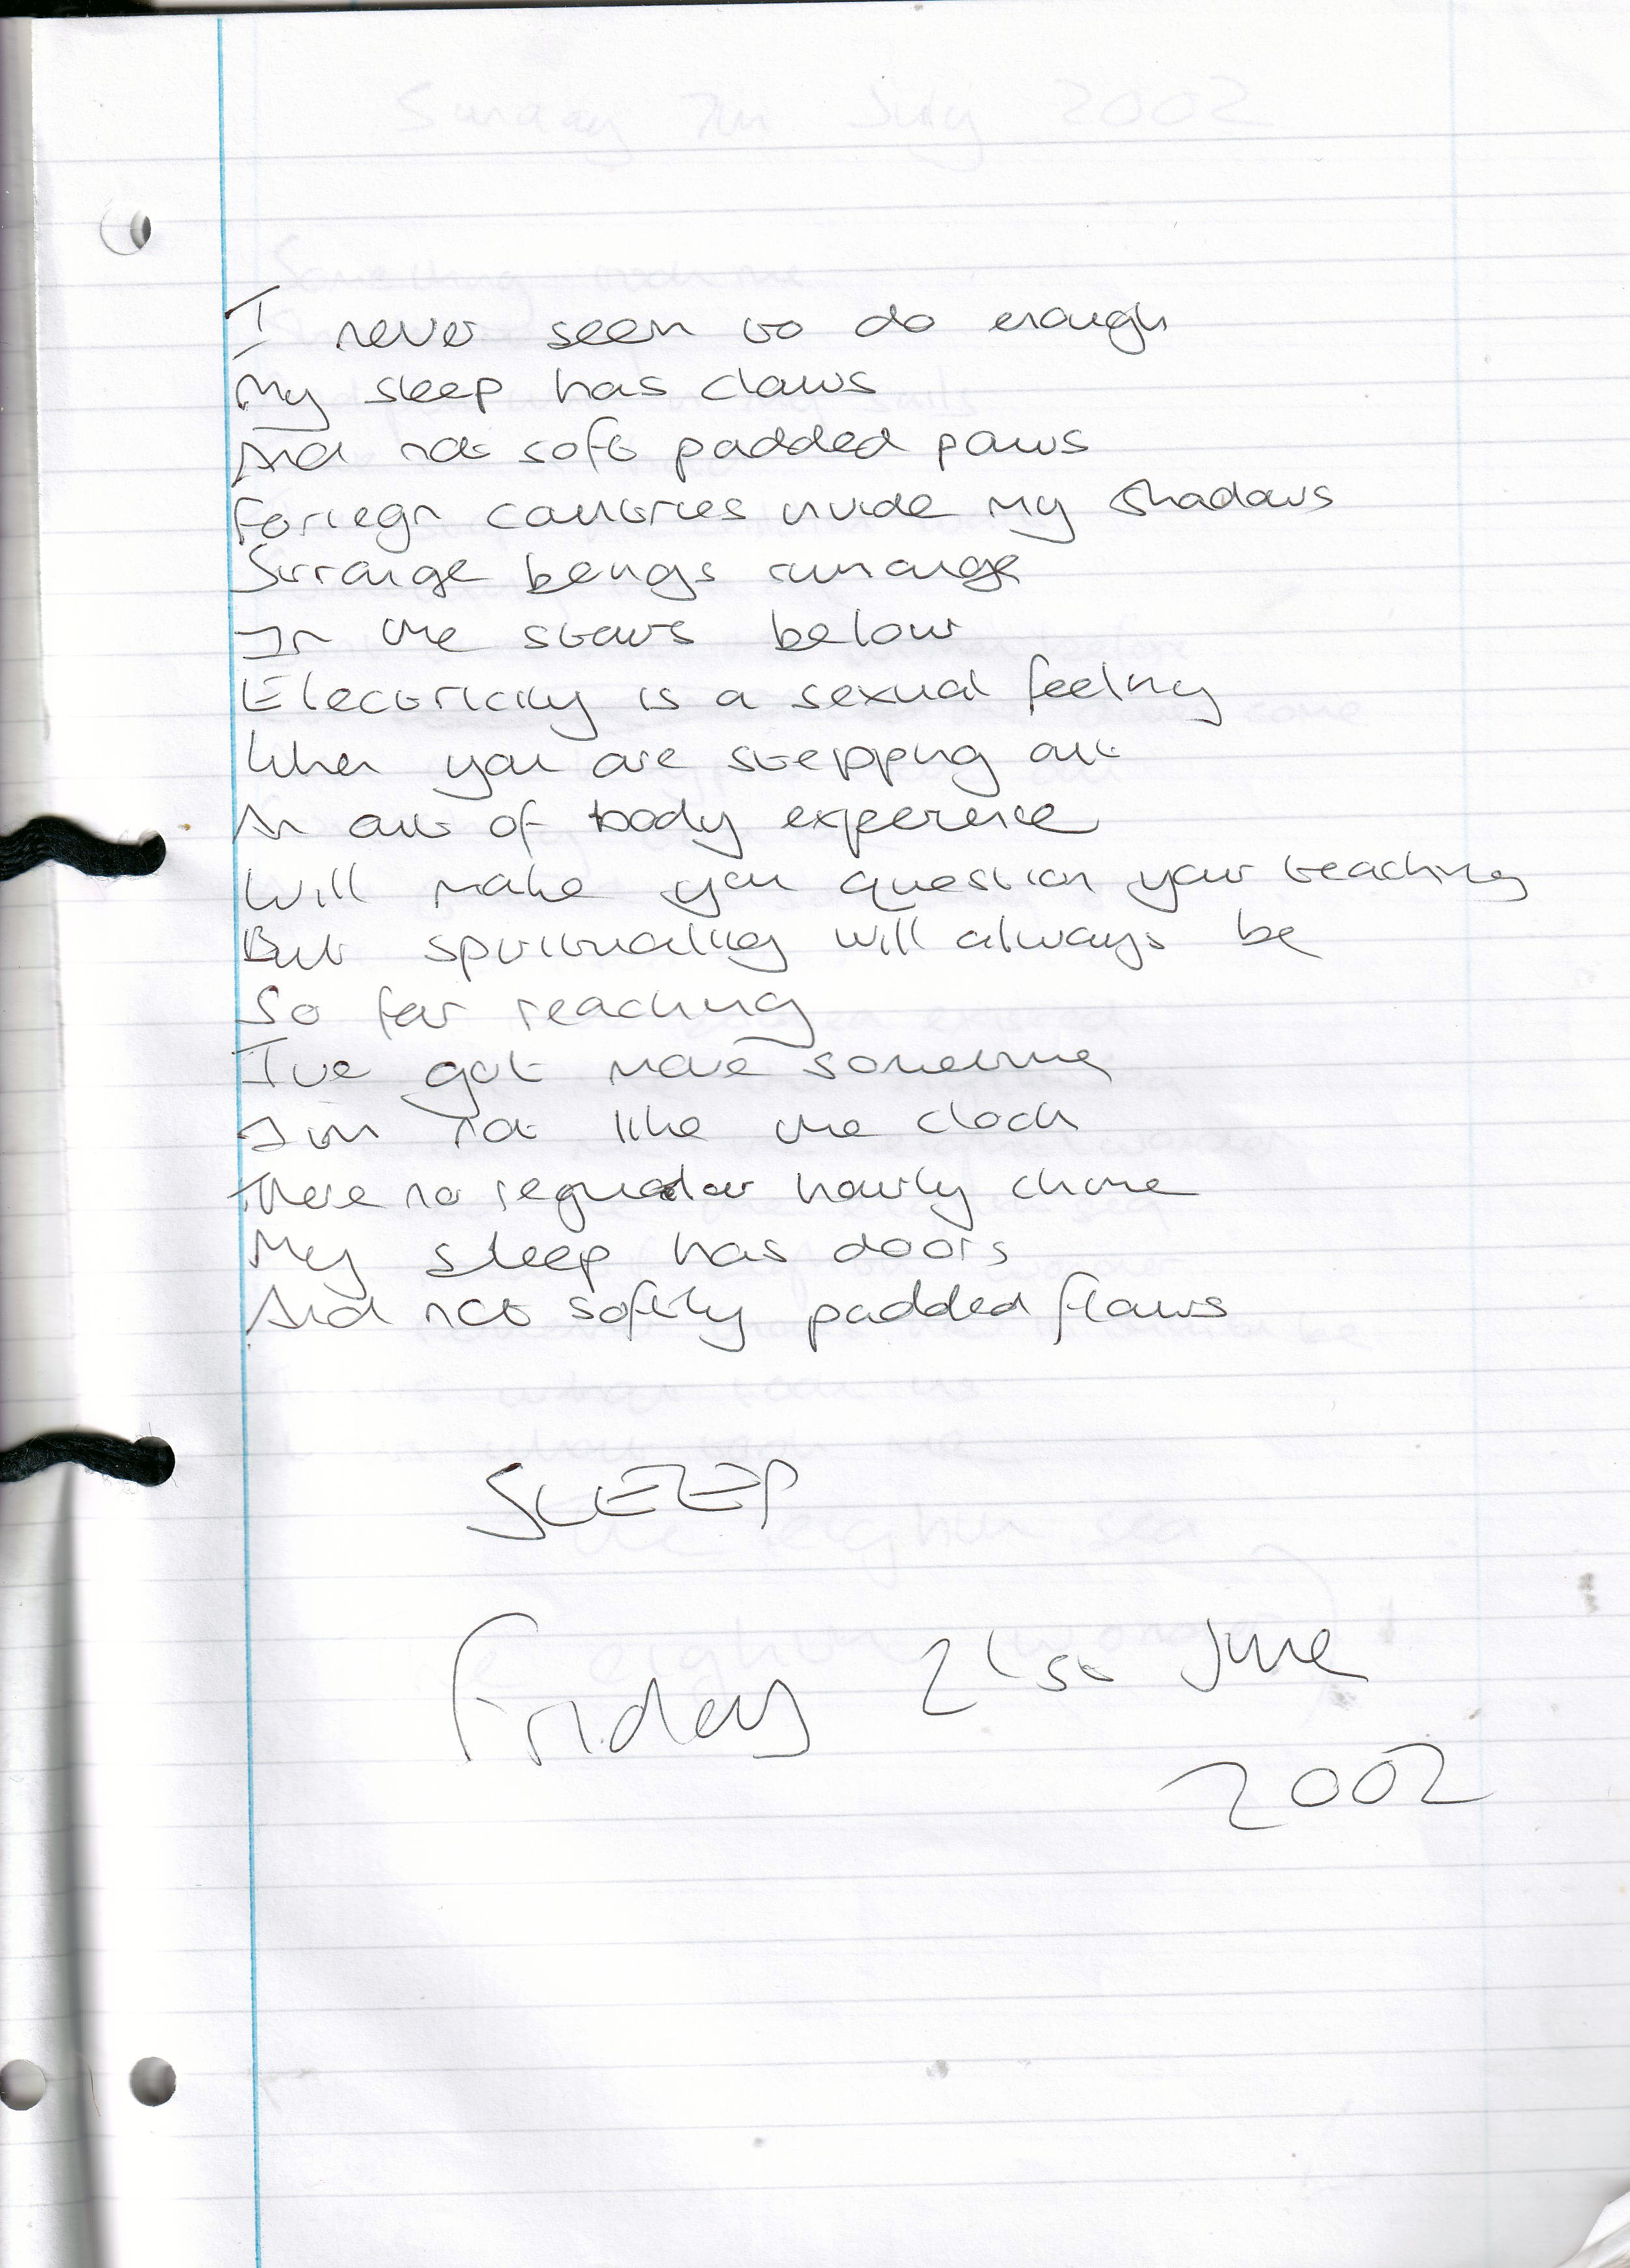 I never seem to do enough
My sleep has claws
And not soft padded paws
Foriegn countries invide my shadows
Strange beings rumange
In the stars below
Electricity is a sexual feeling
When you are stepping out
An out of body experience
Will make you question your teaching
But spirituality will always be
So far reaching
I've got more sometime
I'm not like the clock
There no regular hourly chime
My sleep has doors
And not softly padded flaws
SLEEP
Friday 21st June
2002